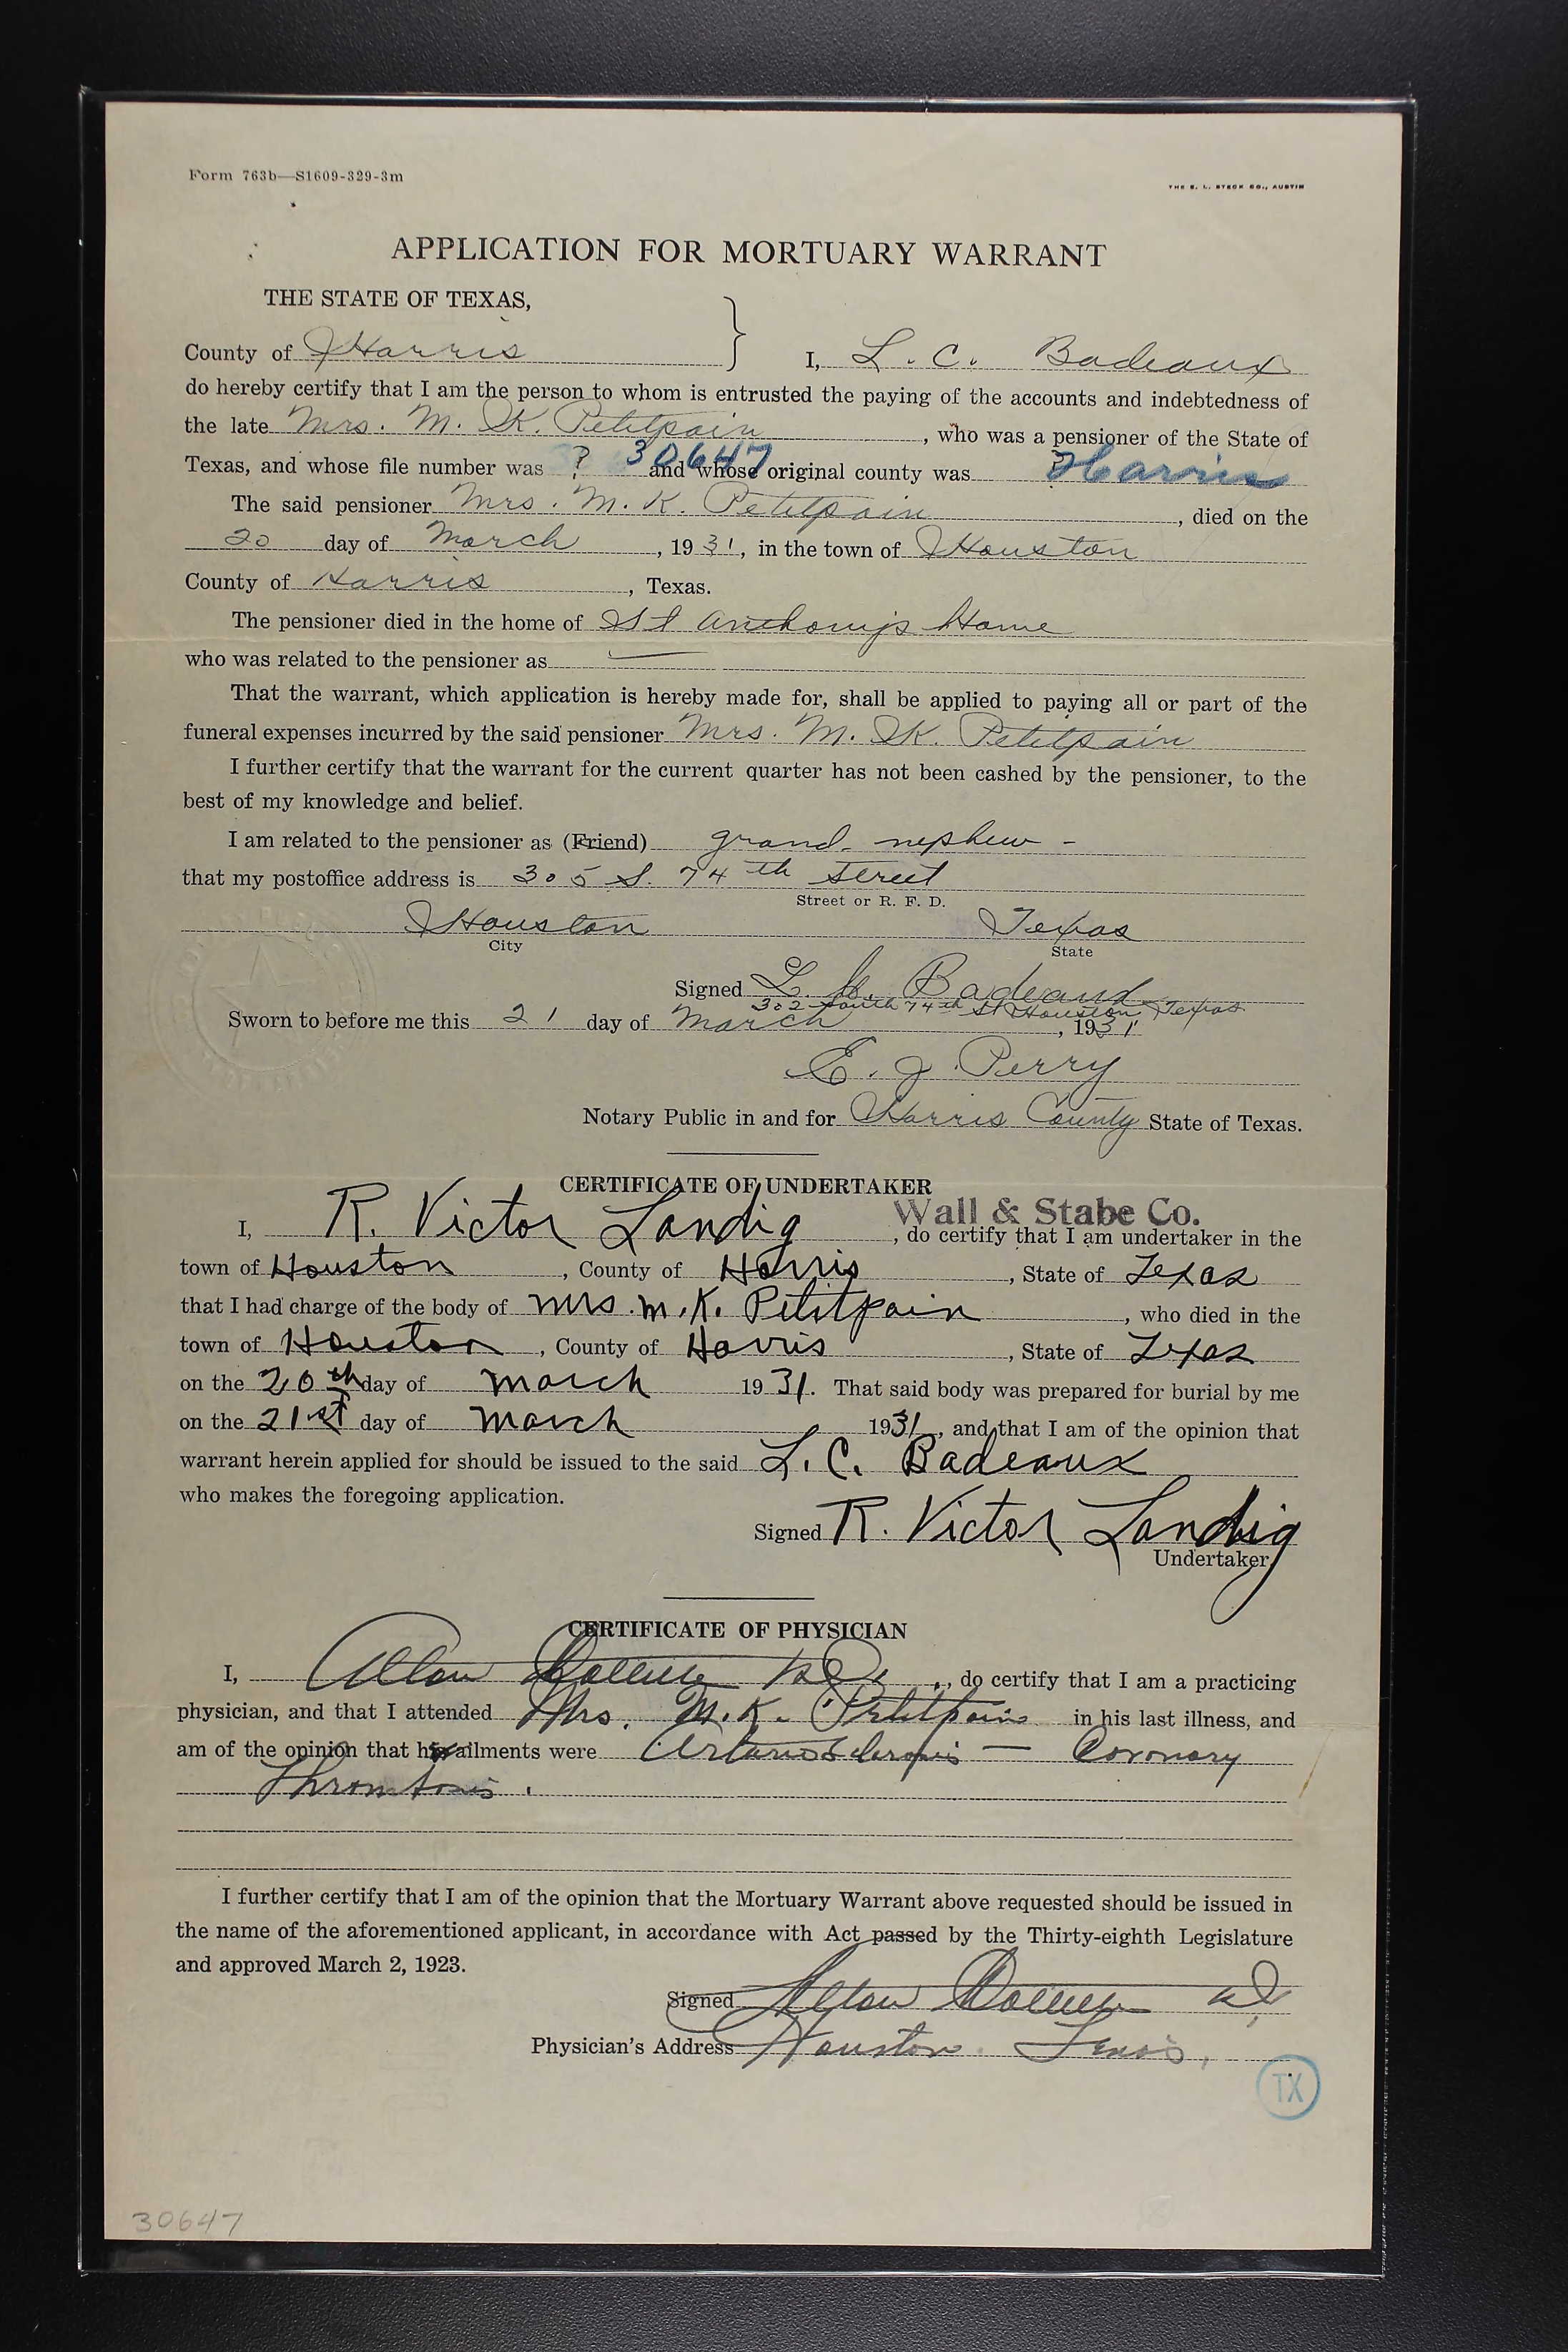 Form 763b—S1609-329-3m
THE E. L. STECK CO., AUSTIN
APPLICATION FOR MORTUARY WARRANT
THE STATE OF TEXAS,
County of Harris } I, L. C. Badeaux
do hereby certify that I am the person to whom is entrusted the paying of the accounts and indebtedness of
the late Mrs. M. K. Petitpain, who was a pensioner of the State of
Texas, and whose file number was ? 30647 and whose original county was ? Harris
The said pensioner Mrs. M. K. Petitpain, died on the
20 day of March, 1931, in the town of Houston
County of Harris, Texas.
The pensioner died in the home of St Anthony's Home
who was related to the pensioner as —
That the warrant, which application is hereby made for, shall be applied to paying all or part of the
funeral expenses incurred by the said pensioner Mrs. M. K. Petitpain
I further certify that the warrant for the current quarter has not been cashed by the pensioner, to the
best of my knowledge and belief.
I am related to the pensioner as (Friend) grand-nephew -
that my postoffice address is 305 S. 74th Street
Street or R. F. D.
Houston Texas
City State
Signed L. C. Badeaux
302 South 74th St Houston Texas
Sworn to before me this 21 day of March, 1931
E. J. Perry
Notary Public in and for Harris County State of Texas.
CERTIFICATE OF UNDERTAKER
Wall & Stabe Co.
I, R. Victor Landig, do certify that I am undertaker in the
town of Houston, County of Harris, State of Texas
that I had charge of the body of Mrs. M. K. Petitpain, who died in the
town of Houston, County of Harris, State of Texas
on the 20th day of March 1931. That said body was prepared for burial by me
on the 21st day of March 1931, and that I am of the opinion that
warrant herein applied for should be issued to the said L. C. Badeaux
who makes the foregoing application.
Signed R. Victor Landig
Undertaker.
CERTIFICATE OF PHYSICIAN
I, , do certify that I am a practicing
physician, and that I attended Mrs. M. K. Petitpain in his last illness, and
am of the opinion that his ailments were Arteriosclerosis — Coronary
Thrombosis.
I further certify that I am of the opinion that the Mortuary Warrant above requested should be issued in
the name of the aforementioned applicant, in accordance with Act passed by the Thirty-eighth Legislature
and approved March 2, 1923.
Signed
Physician's Address Houston Texas,
TX
30647